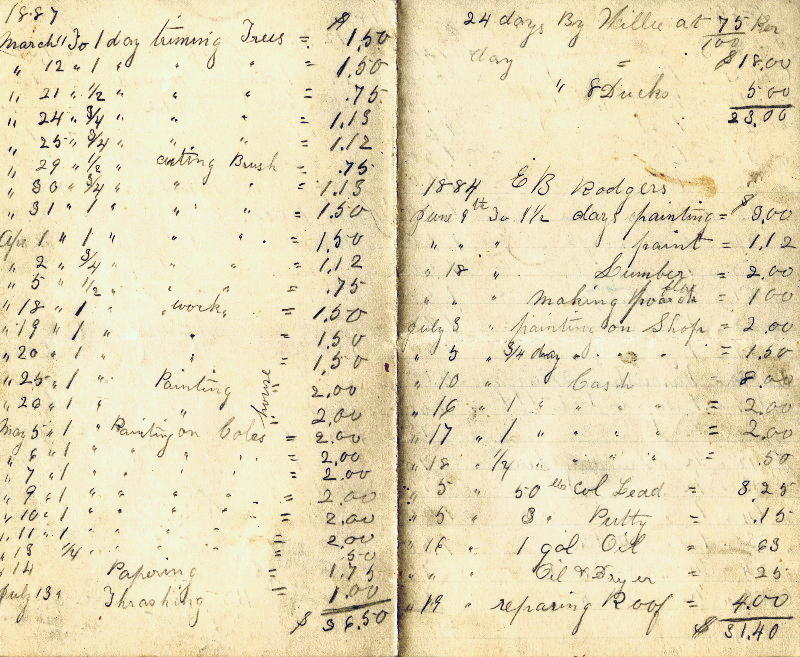 1887 $
March 11 To 1 day triming Trees = 1.50
" 12 " 1 " " " = 1.50
" 21 " 1/2 " " " = .75
" 24 " 3/4 " " " = 1.13
" 25 " 3/4 " " " = 1.12
" 29 " 1/2 " cuting Brush = .75
" 30 " 3/4 " " " = 1.13
" 31 " 1 " " " = 1.50
Apr 1 " 1 " " " = 1.50
" 2 " 3/4 " " " = 1.12
" 5 " 1/2 " " " = .75
" 18 " 1 " work " = 1.50
" 19 " 1 " " = 1.50
" 20 " 1 " " " 1.50
" 25 " 1 " Painting house " 2.00
" 26 " 1 " " " 2.00
May 5 " 1 " Painting on Coles = 2.00
" 6 " 1 " " " " = 2.00
" 7 " 1 " " " " = 2.00
" 9 " 1 " " " " = 2.00
" 10 " 1 " " " " = 2.00
" 11 " 1 " " " " = 2.00
" 13 1/4 " " " " = 50
" 14 Papering " 1.75
July 13 " Thrashing 1.00
$ 36.50
24 days By Willie at 75/100 Per
day = $18.00
" 8 Ducks 5.00
23.00
1884 E B Rodgers
June 9th To 1 1/2 days painting = $ 3.00
" " " paint = 1.12
" 18 " Lumber = 2.00
" " " making poarch = 100
July 3 " painting on Shop = 2.00
" 5 " 3/4 day " " " = 1.50
" 10 " Cash = 8.00
" 16 " 1 " " " " = 2.00
" 17 " 1 " " " " = 2.00
" 18 " 1/4 " " " " = .50
" 5 " 50 lb Col Lead = 3.25
" 5 " 3 " Putty = .15
" 16 " 1 gal Oil = 63
" " Oil & Dryer = 25
" 19 " reparing Roof = 4.00
$ 31.40